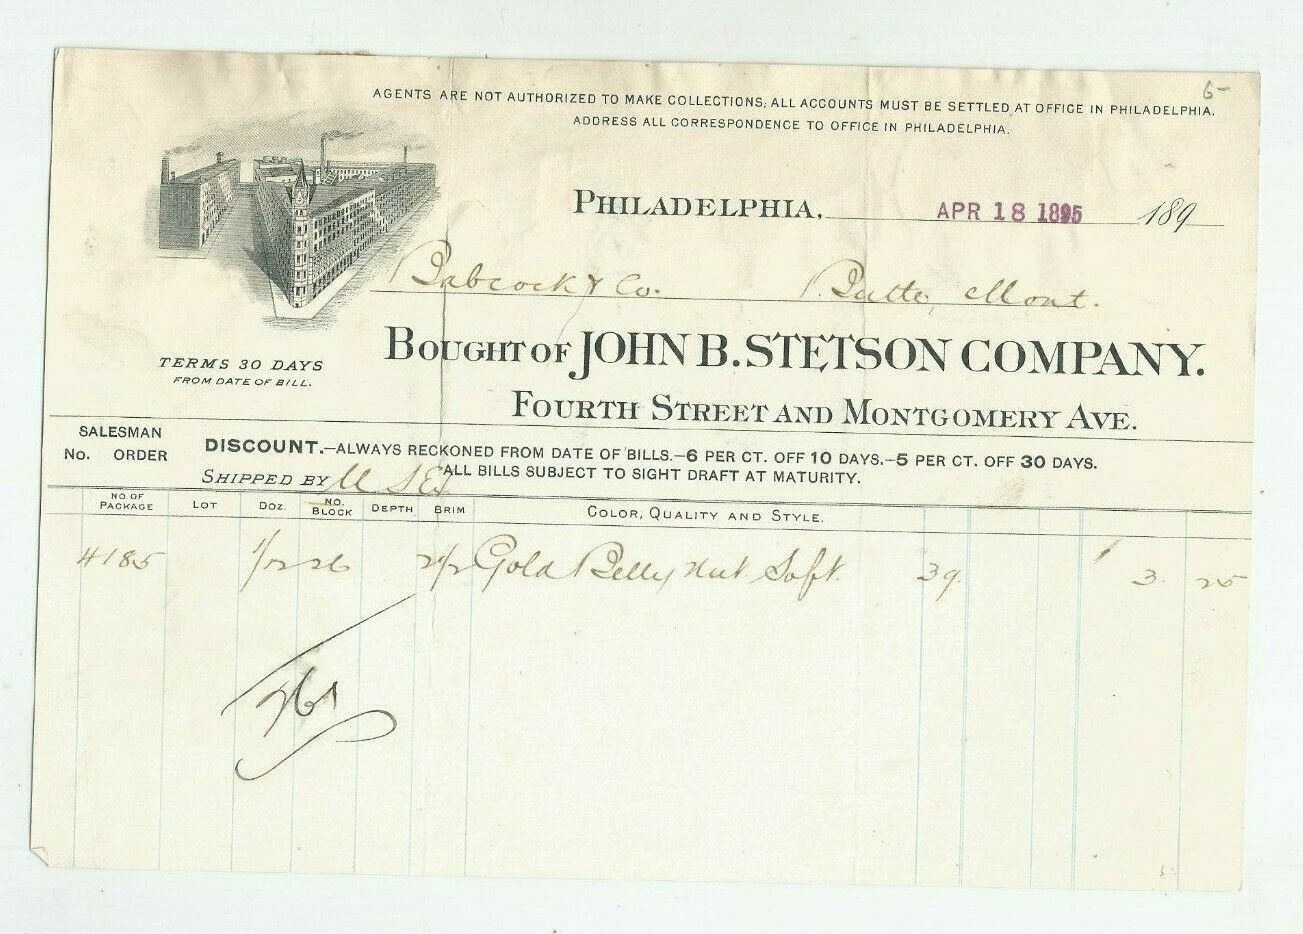 6-
AGENTS ARE NOT AUTHORIZED TO MAKE COLLECTIONS; ALL ACCOUNTS MUST BE SETTLED AT OFFICE IN PHILADELPHIA.
ADDRESS ALL CORRESPONDENCE TO OFFICE IN PHILADELPHIA.
PHILADELPHIA, APR 18 1895 189
Babcock & Co. Butte, Mont.
BOUGHT OF JOHN B. STETSON COMPANY.
TERMS 30 DAYS
FROM DATE OF BILL.
FOURTH STREET AND MONTGOMERY AVE.
SALESMAN
No. ORDER
DISCOUNT.—ALWAYS RECKONED FROM DATE OF BILLS.—6 PER CT. OFF 10 DAYS.—5 PER CT. OFF 30 DAYS.
SHIPPED BY U S Ex ALL BILLS SUBJECT TO SIGHT DRAFT AT MATURITY.
NO. OF PACKAGE LOT DOZ. NO. BLOCK DEPTH BRIM COLOR, QUALITY AND STYLE.
4185 1/12 26 2 1/2 Gold Belly Nut. Soft. 39. 3. 25